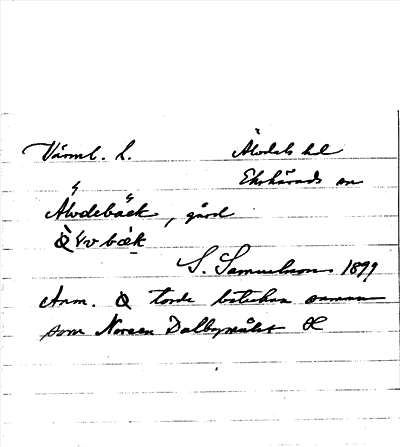 Värml. L.
Älvdals hd
Ekshärads sn
Älvdebäck, gård
S. Samuelsson 1899
Anm. torde beteckna samma
som Noreen Dalbymålet